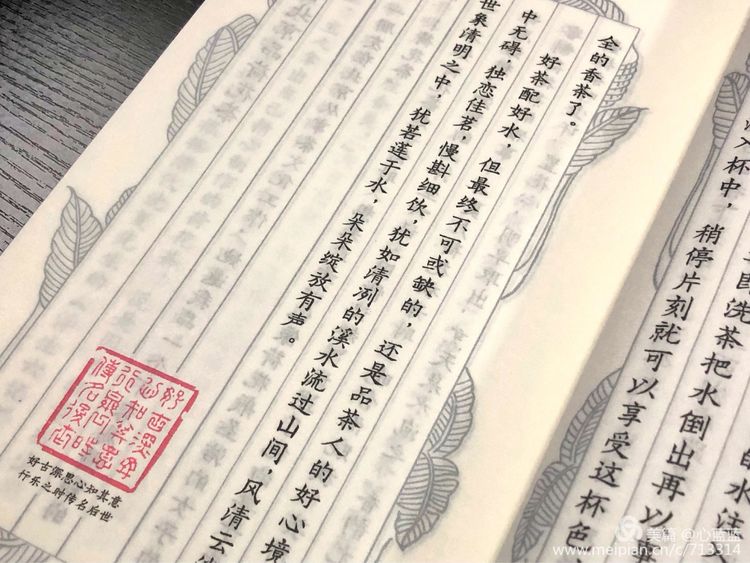 的水注
洗茶把水倒出再以
杯中，稍停片刻就可以享受这杯色
全的香茶了。
好茶配好水，但最终不可或缺的，还是品茶人的好心境
中无碍，独恋佳茗，慢斟细饮，犹如清冽的溪水流过山间，风清云
世象清明之中，犹若莲于水，朵朵绽放有声。
好古深思心知其意
行乐之时传名后世
美篇 @心蓝蓝
www.meipian.cn/c/713314